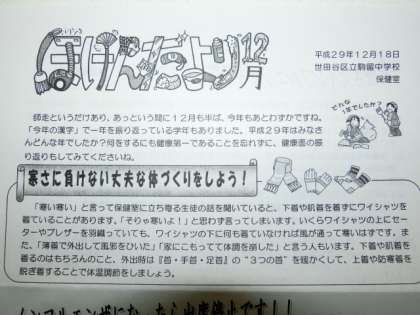 ほけんだより12月
平成29年12月18日
世田谷区立駒留中学校
保健室
師走というだけあり、あっという間に12月も半ば、今年もあとわずかですね。
「今年の漢字」で一年を振り返っている学年もありました。平成29年はみなさ
んどんな年でしたか？何をするにも健康第一であることを忘れずに、健康面の振
り返りもしてみてくださいね。
どんな
年でしたか？
寒さに負けない丈夫な体づくりをしよう！
「寒い寒い」と言って保健室に立ち寄る生徒の話を聞いていると、下着や肌着を着ずにワイシャツを
着ていることがあります。「そりゃ寒いよ！」と思わず言ってしまいます。いくらワイシャツの上にセー
ターやブレザーを羽織っていても、ワイシャツの下に何も着ていなければ風が通って寒いはずです。ま
た、「薄着で外出して風邪をひいた」「家にこもってて体調を崩した」と言う人もいます。下着や肌着を
着るのはもちろんのこと、外出時は『首・手首・足首』の“3つの首”を暖かくして、上着や防寒着を
脱ぎ着することで体温調節をしましょう。
インフルエンザになったら出席停止です！！